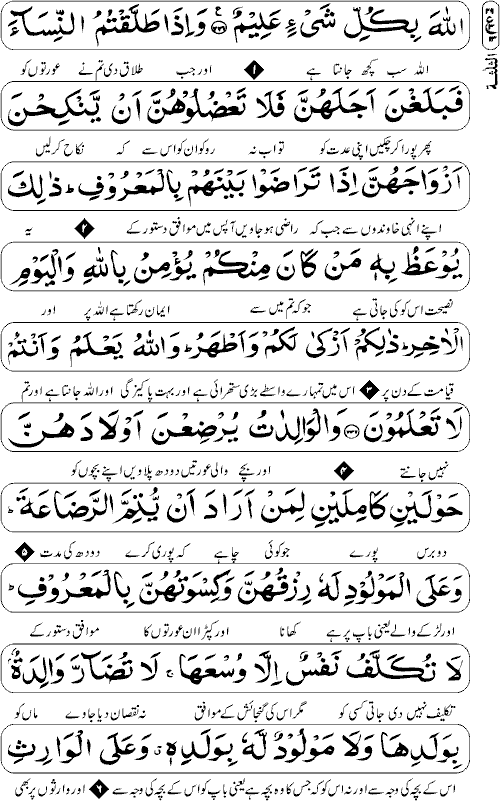 اللّٰهَ بِكُلِّ شَیْءٍ عَلِیْمٌ ﴿۲۳۱﴾ وَاِذَا طَلَّقْتُمُ النِّسَآءَ
اللہ سب کچھ جانتا ہے ۱ اور جب طلاق دی تم نے عورتوں کو
فَبَلَغْنَ اَجَلَهُنَّ فَلَا تَعْضُلُوْهُنَّ اَنْ یَّنْكِحْنَ
پھر پورا کر چکیں اپنی عدت کو تو اب نہ روکو ان کو اس سے کہ نکاح کرلیں
اَزْوَاجَهُنَّ اِذَا تَرَاضَوْا بَیْنَهُمْ بِالْمَعْرُوْفِ ؕ ذٰلِكَ
اپنے انہی خاوندوں سے جب کہ راضی ہو جاویں آپس میں موافق دستور کے ۲ یہ
یُوْعَظُ بِهٖ مَنْ كَانَ مِنْكُمْ یُؤْمِنُ بِاللّٰهِ وَالْیَوْمِ
نصیحت اس کو کی جاتی ہے جو کہ تم میں سے ایمان رکھتا ہے اللہ پر اور
الْاٰخِرِ ؕ ذٰلِكُمْ اَزْكٰی لَكُمْ وَاَطْهَرُ ؕ وَاللّٰهُ یَعْلَمُ وَاَنْتُمْ
قیامت کے دن پر ۳ اس میں تمہارے واسطے بڑی ستھرائی ہے اور بہت پاکیزگی اور اللہ جانتا ہے اور تم
لَا تَعْلَمُوْنَ ﴿۲۳۲﴾ وَالْوَالِدٰتُ یُرْضِعْنَ اَوْلَادَهُنَّ
نہیں جانتے ۴ اور بچے والی عورتیں دودھ پلاویں اپنے بچوں کو
حَوْلَیْنِ كَامِلَیْنِ لِمَنْ اَرَادَ اَنْ یُّتِمَّ الرَّضَاعَةَ ؕ
دو برس پورے جو کوئی چاہے کہ پوری کرے دودھ کی مدت ۵
وَعَلَی الْمَوْلُوْدِ لَهٗ رِزْقُهُنَّ وَكِسْوَتُهُنَّ بِالْمَعْرُوْفِ ؕ
اور لڑکے والے یعنی باپ پر ہے کھانا اور کپڑا ان عورتوں کا موافق دستور کے
لَا تُكَلَّفُ نَفْسٌ اِلَّا وُسْعَهَا ۚ لَا تُضَآرَّ وَالِدَةٌۢ
تکلیف نہیں دی جاتی کسی کو مگر اس کی گنجائش کے موافق نہ نقصان دیا جاوے ماں کو
بِوَلَدِهَا وَلَا مَوْلُوْدٌ لَّهٗ بِوَلَدِهٖ ۗ وَعَلَی الْوَارِثِ
اس کے بچہ کی وجہ سے اور نہ اس کو کہ جس کا وہ بچہ ہے یعنی باپ کو اس کے بچہ کی وجہ سے ۶ اور وارثوں پر بھی